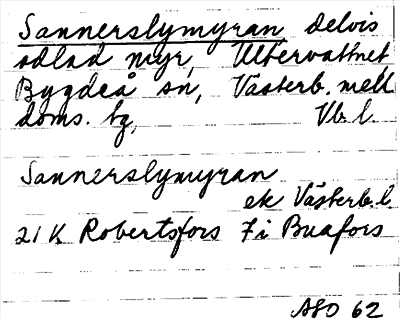 Sannerslymyran delvis
odlad myr, Ultervattnet
Bygdeå sn, Västerb. mell
doms. tg, Vb. l.
Sannerslymyran
ek Västerb. l.
21 K Robertsfors 7 i Buafors
ASO 62